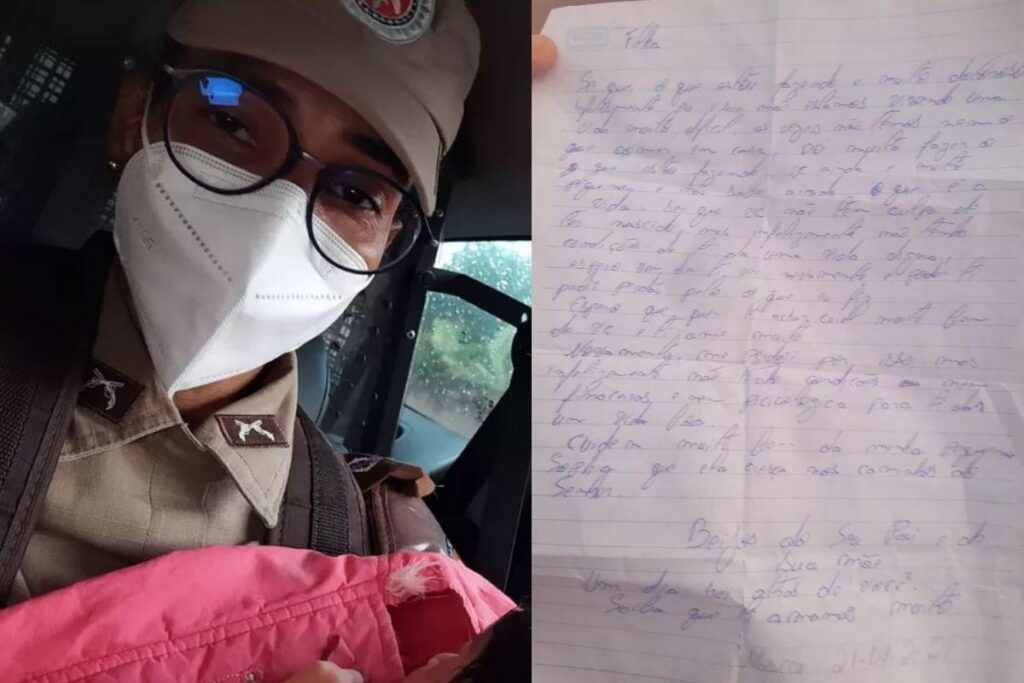 Filha
Se que, o que estou fazendo e muito doloroso
infelizmente eu e sua mãe estamos vivendo uma
vida muito dificil, as vezes não temos nem o
que comer em casa, Doi muito fazer o
que estou fazendo, vc ainda e muito
pequena e não sabe ainda o que, e a
vida. Sei que vc não tem culpa de
ter nascido, mas infelizmente não tenho
condições de t da uma vida digna
espero um dia t ver novamente e poder t
pedir perdão pelo o que eu fiz
Espero que quem t achar cuide muito bem
de vc e t ame muito
Novamente me perdoi por isso mas
infelizmente não tenho condições nem
financeras e nem psicologico para t dar
um vida boa.
Cuidem muito bem da minha pequena
que ela cresça nos caminhos do
Senhor.
Beijos do Seu Pai e da
Sua mãe
Um dia irei atras de você.
Saiba que t amamos muito